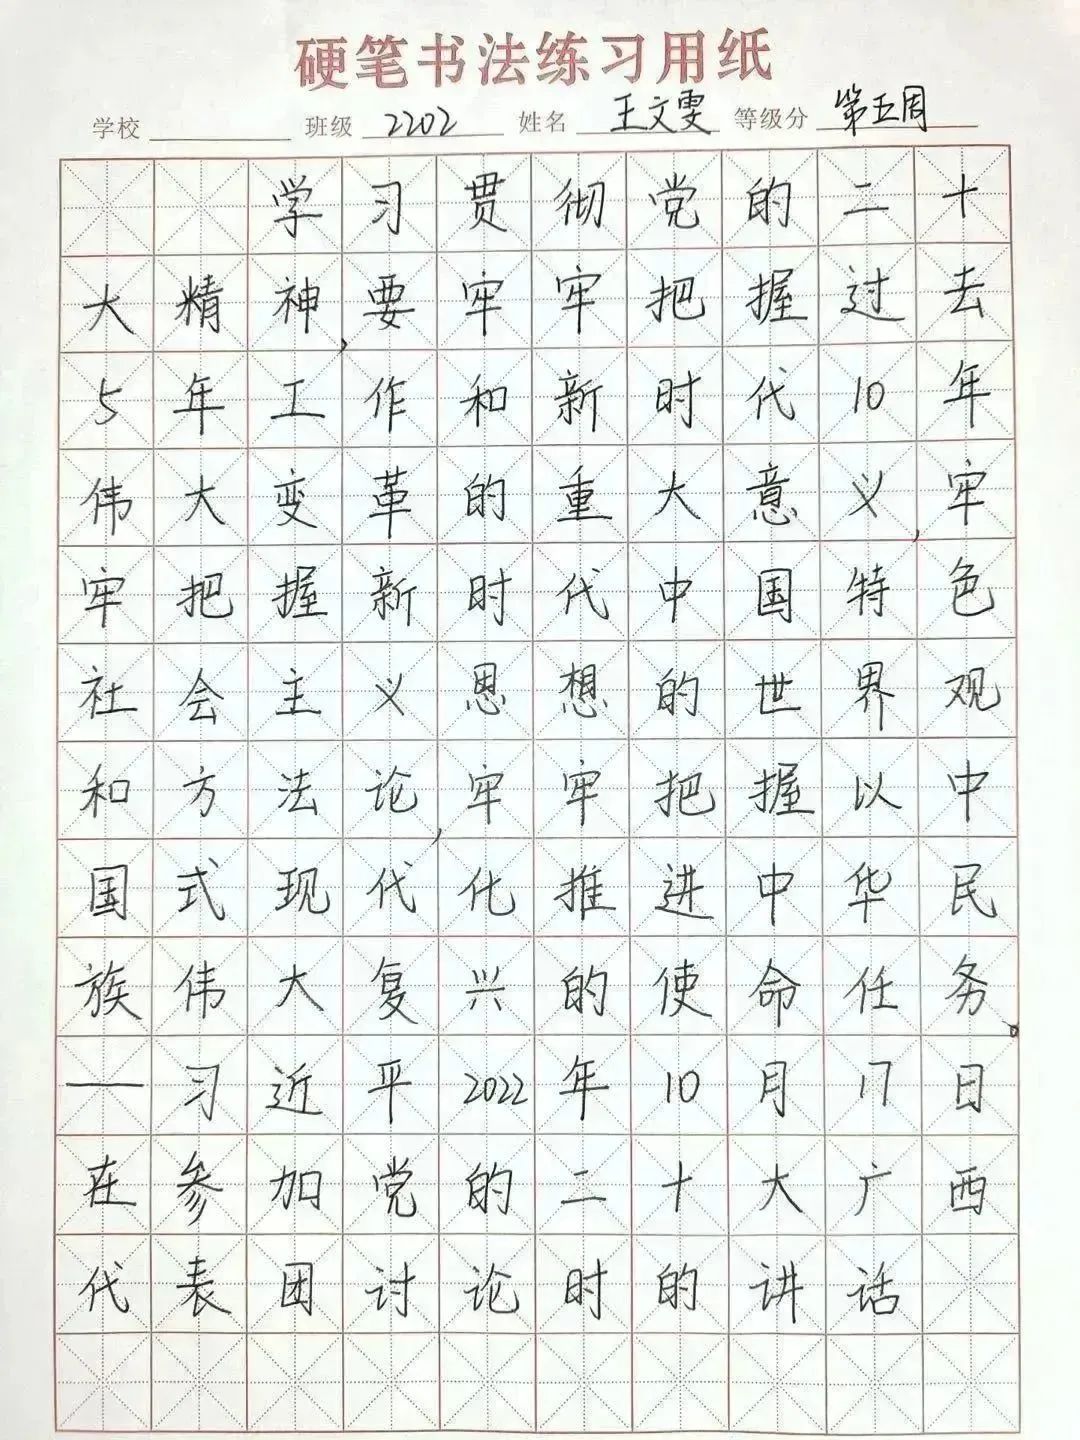 硬笔书法练习用纸
学校 班级 2202 姓名 王文雯 等级分 第五周
学习贯彻党的二十
大精神,要牢牢把握过去
5年工作和新时代10年
伟大变革的重大意义,牢
牢把握新时代中国特色
社会主义思想的世界观
和方法论,牢牢把握以中
国式现代化推进中华民
族伟大复兴的使命任务。
—习近平2022年10月17日
在参加党的二十大广西
代表团讨论时的讲话